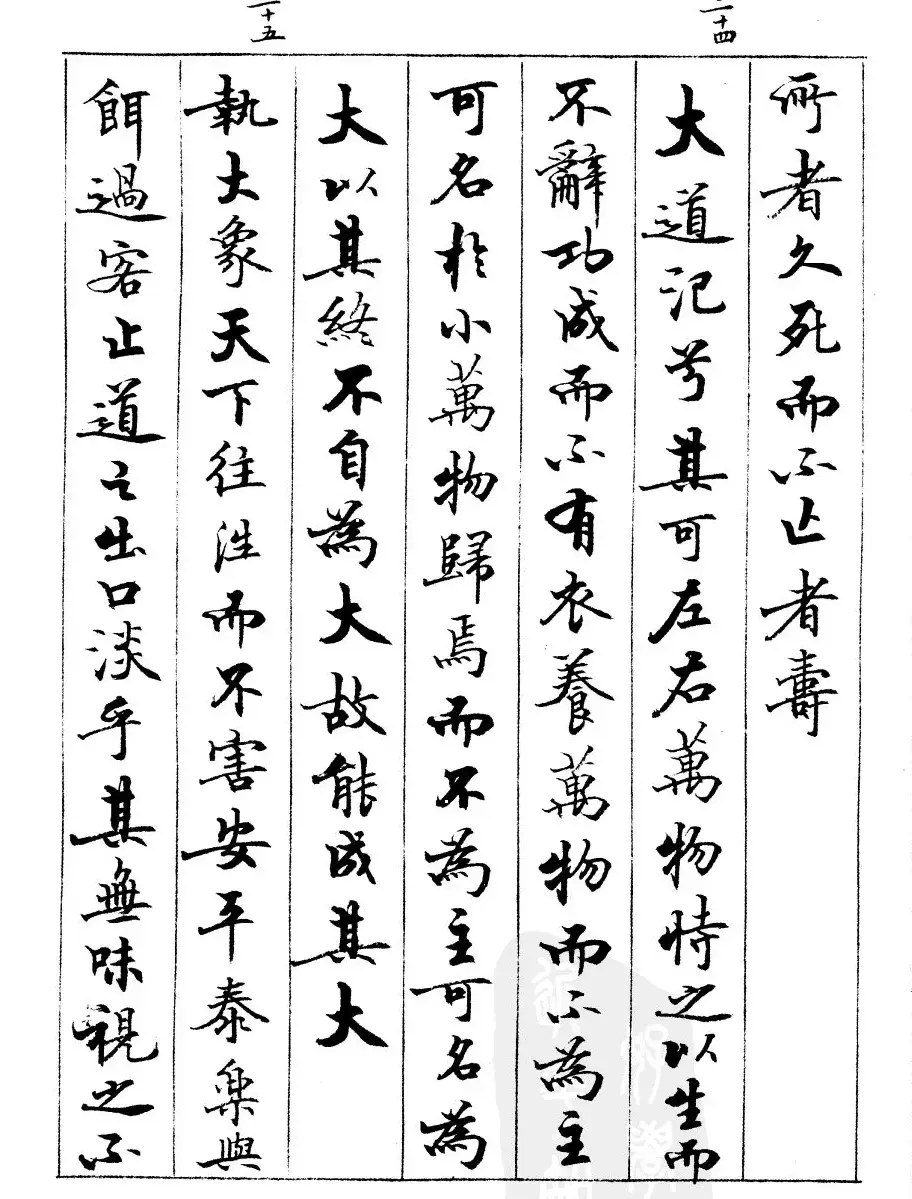 十四
所者久死而不亡者壽
大道汜兮其可左右萬物恃之以生而
不辭功成而不有衣養萬物而不為主
可名於小萬物歸焉而不為主可名為
大以其終不自為大故能成其大
十五
執大象天下往往而不害安平泰樂與
餌過客止道之出口淡乎其無味視之不